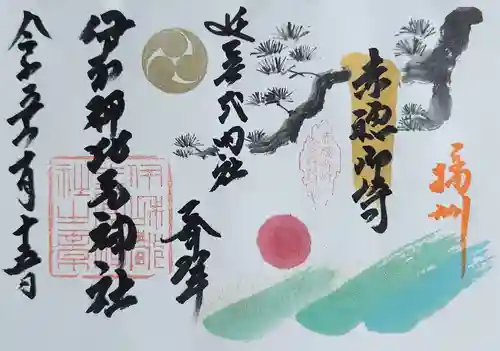 播州
赤穂御崎
延喜式内社
奉拝
伊和都比売神社
令和 月十五日